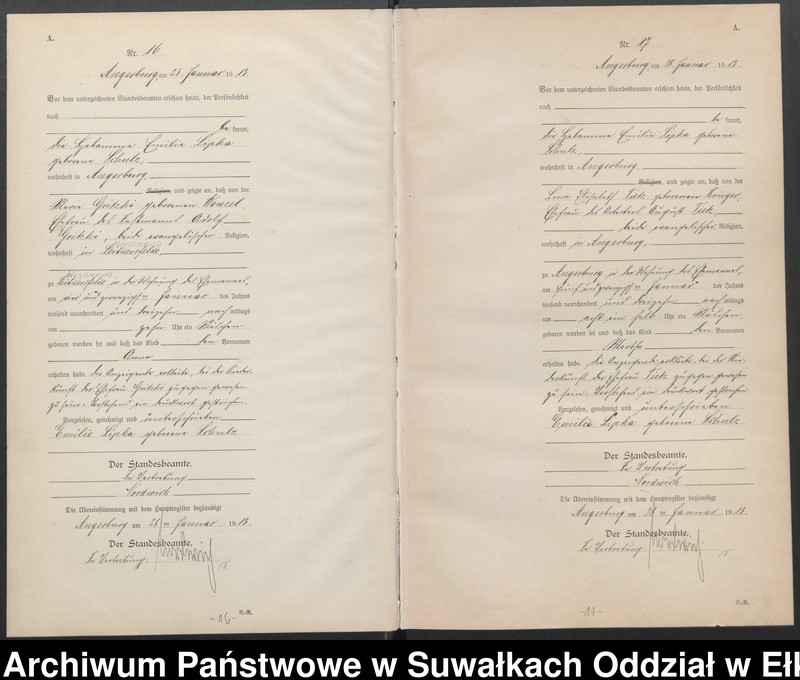 A.
Nr. 16
Angerburg am 28. Januar 1913.
Vor dem unterzeichneten Standesbeamten erschien heute, der Persönlichkeit
nach
be kannt,
die Hebamme Emilie Lipka
geborene Schulz,
wohnhaft in Angerburg,
Religion, und zeigte an, daß von der
Marie Gritzki geborenen
Ehefrau des Adolf
Gritzki, beide evangelischer Religion,
wohnhaft in
zu in der Wohnung des Ehemannes,
am vier und zwanzigsten Januar des Jahres
tausend neunhundert und dreizehn nach mittags
um zehn Uhr ein Mädchen
geboren worden sei und daß das Kind den Vornamen
Anna
erhalten habe. Die Anzeigende erklärte, bei der Nieder-
kunft der Ehefrau Gritzki zugegen gewesen
zu sein. Vorstehend ein Druckwort gestrichen.
Vorgelesen, genehmigt und unterschrieben
Emilie Lipka geborene Schulz
Der Standesbeamte.
In Vertretung
Die Übereinstimmung mit dem Hauptregister beglaubigt
Angerburg am 28 ten Januar 1913.
Der Standesbeamte.
In Vertretung.
N.-R.
-16-
A.
Nr. 17
Angerburg, am 28. Januar 1913.
Vor dem unterzeichneten Standesbeamten erschien heute, der Persönlichkeit
nach
be kannt,
die Hebamme Emilie Lipka geborene
Schulz,
wohnhaft in Angerburg,
Religion, und zeigte an, daß von der
Elisabeth geborenen Krüger,
Ehefrau des Arbeiters August
beide evangelischer Religion,
wohnhaft in Angerburg,
zu Angerburg in der Wohnung des Ehemannes,
am fünf und zwanzigsten Januar des Jahres
tausend neunhundert und dreizehn nach mittags
um acht ein halb Uhr ein Mädchen
geboren worden sei und daß das Kind den Vornamen
Martha
erhalten habe. Die Anzeigende erklärte, bei der Nie-
derkunft der Ehefrau zugegen gewesen
zu sein. Vorstehend ein Druckwort gestrichen
Vorgelesen, genehmigt und unterschrieben
Emilie Lipka geborene Schulz
Der Standesbeamte.
In Vertretung
Die Übereinstimmung mit dem Hauptregister beglaubigt
Angerburg am 28 ten Januar 1913.
Der Standesbeamte.
In Vertretung
N.-R.
Archiwum Państwowe w Suwałkach Oddział w Ełk